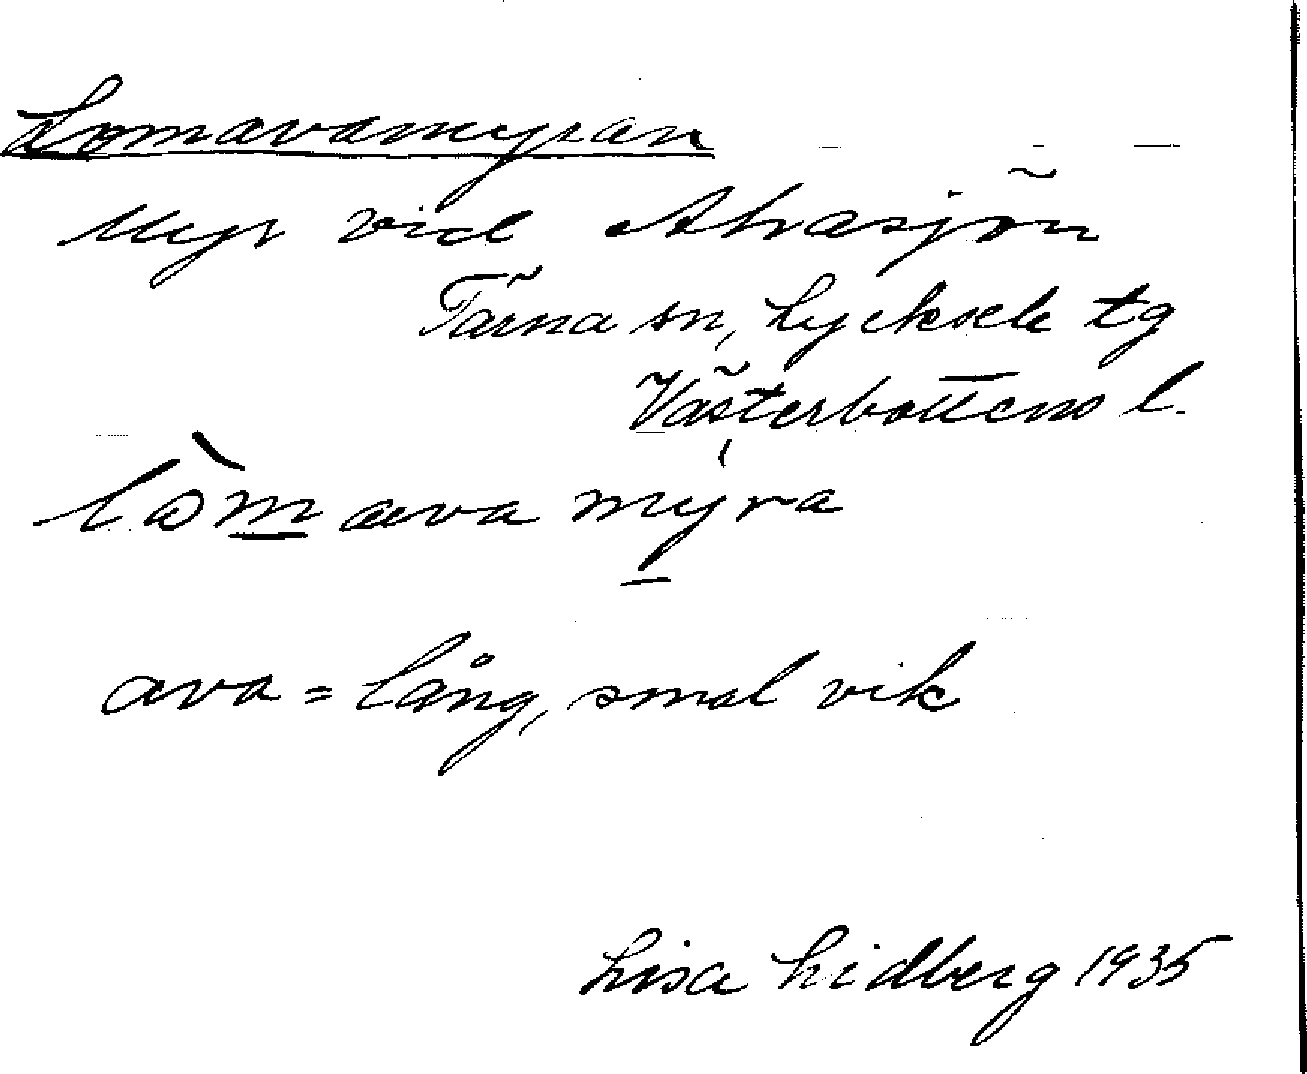 Lomavamyran
Myr vid Ahasjön
Tärna sn, Lycksele tg
Västerbottens l.
lòm ava mýra
ava = lång, smal vik
Lisa Lidberg 1935